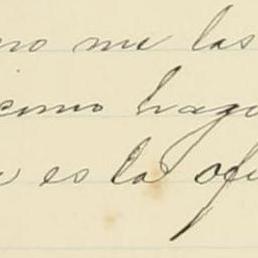 no me las
como hago
es la ofi